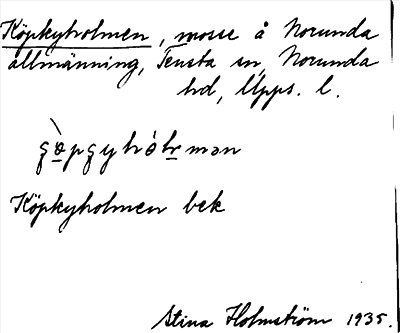 Köpkyholmen, mosse å Norunda
allmänning, Tensta sn, Norunda
hd, Upps. l.
Köpkyholmen bek
Stina Holmström 1935.